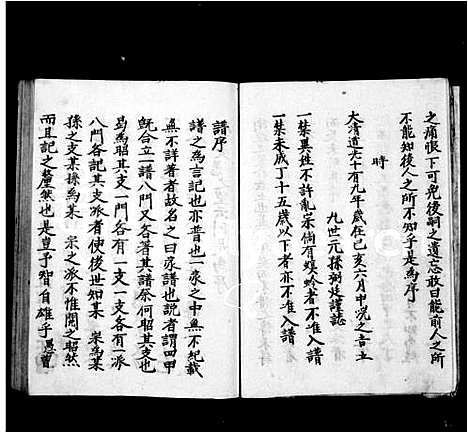 之痛恨下可免後嗣之遺忘敢曰能前人之所
不能知後人之所不知乎是為序
時
大清道光十有九年歲在己亥六月中浣之吉立
九世元孫 謹誌
一禁異姓不許亂宗倘有螟蛉者不准入譜
一禁未成丁十五歲以下者亦不准入譜
譜序
譜之為言記也亦普也一家之中無不紀載
無不詳著者故名之曰家譜也說者謂四甲
既合立一譜八門又各著其譜奈何昭其支也
曷為昭其支一門各有一支一支各有一派
八門各記其支派者使後世知某 宗為某
孫之支某孫為某 宗之派不惟閱之昭然
而且記之釐然也是豈予智自雄乎愚曾